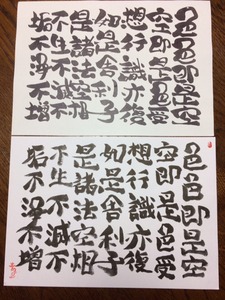 色色即是空
空即是色受
想行識亦復
如是舎利子
是諸法空相
不生不滅不
垢不浄不増
色色即是空
空即是色受
想行識亦復
如是舎利子
是諸法空相
不生不滅不
垢不浄不増